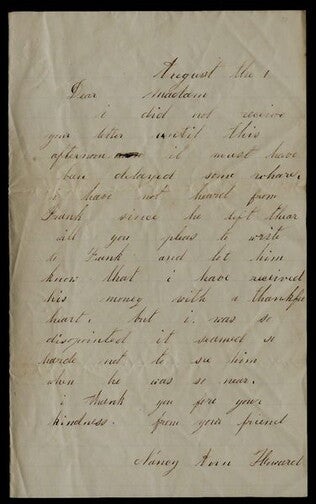 August the 1
Dear madam
i did not receive
your letter until this
afternoon it must have
ben delayed some whare.
i have not heard from
Frank since he left thear
will you pleas to write
to Frank and let him
know that i have received
his money with a thankful
heart. but i was so
disapointed it seamed so
harde not to see him
when he was so near.
i thank you fore your
kindness. from your friend
Nancy Ann Howard